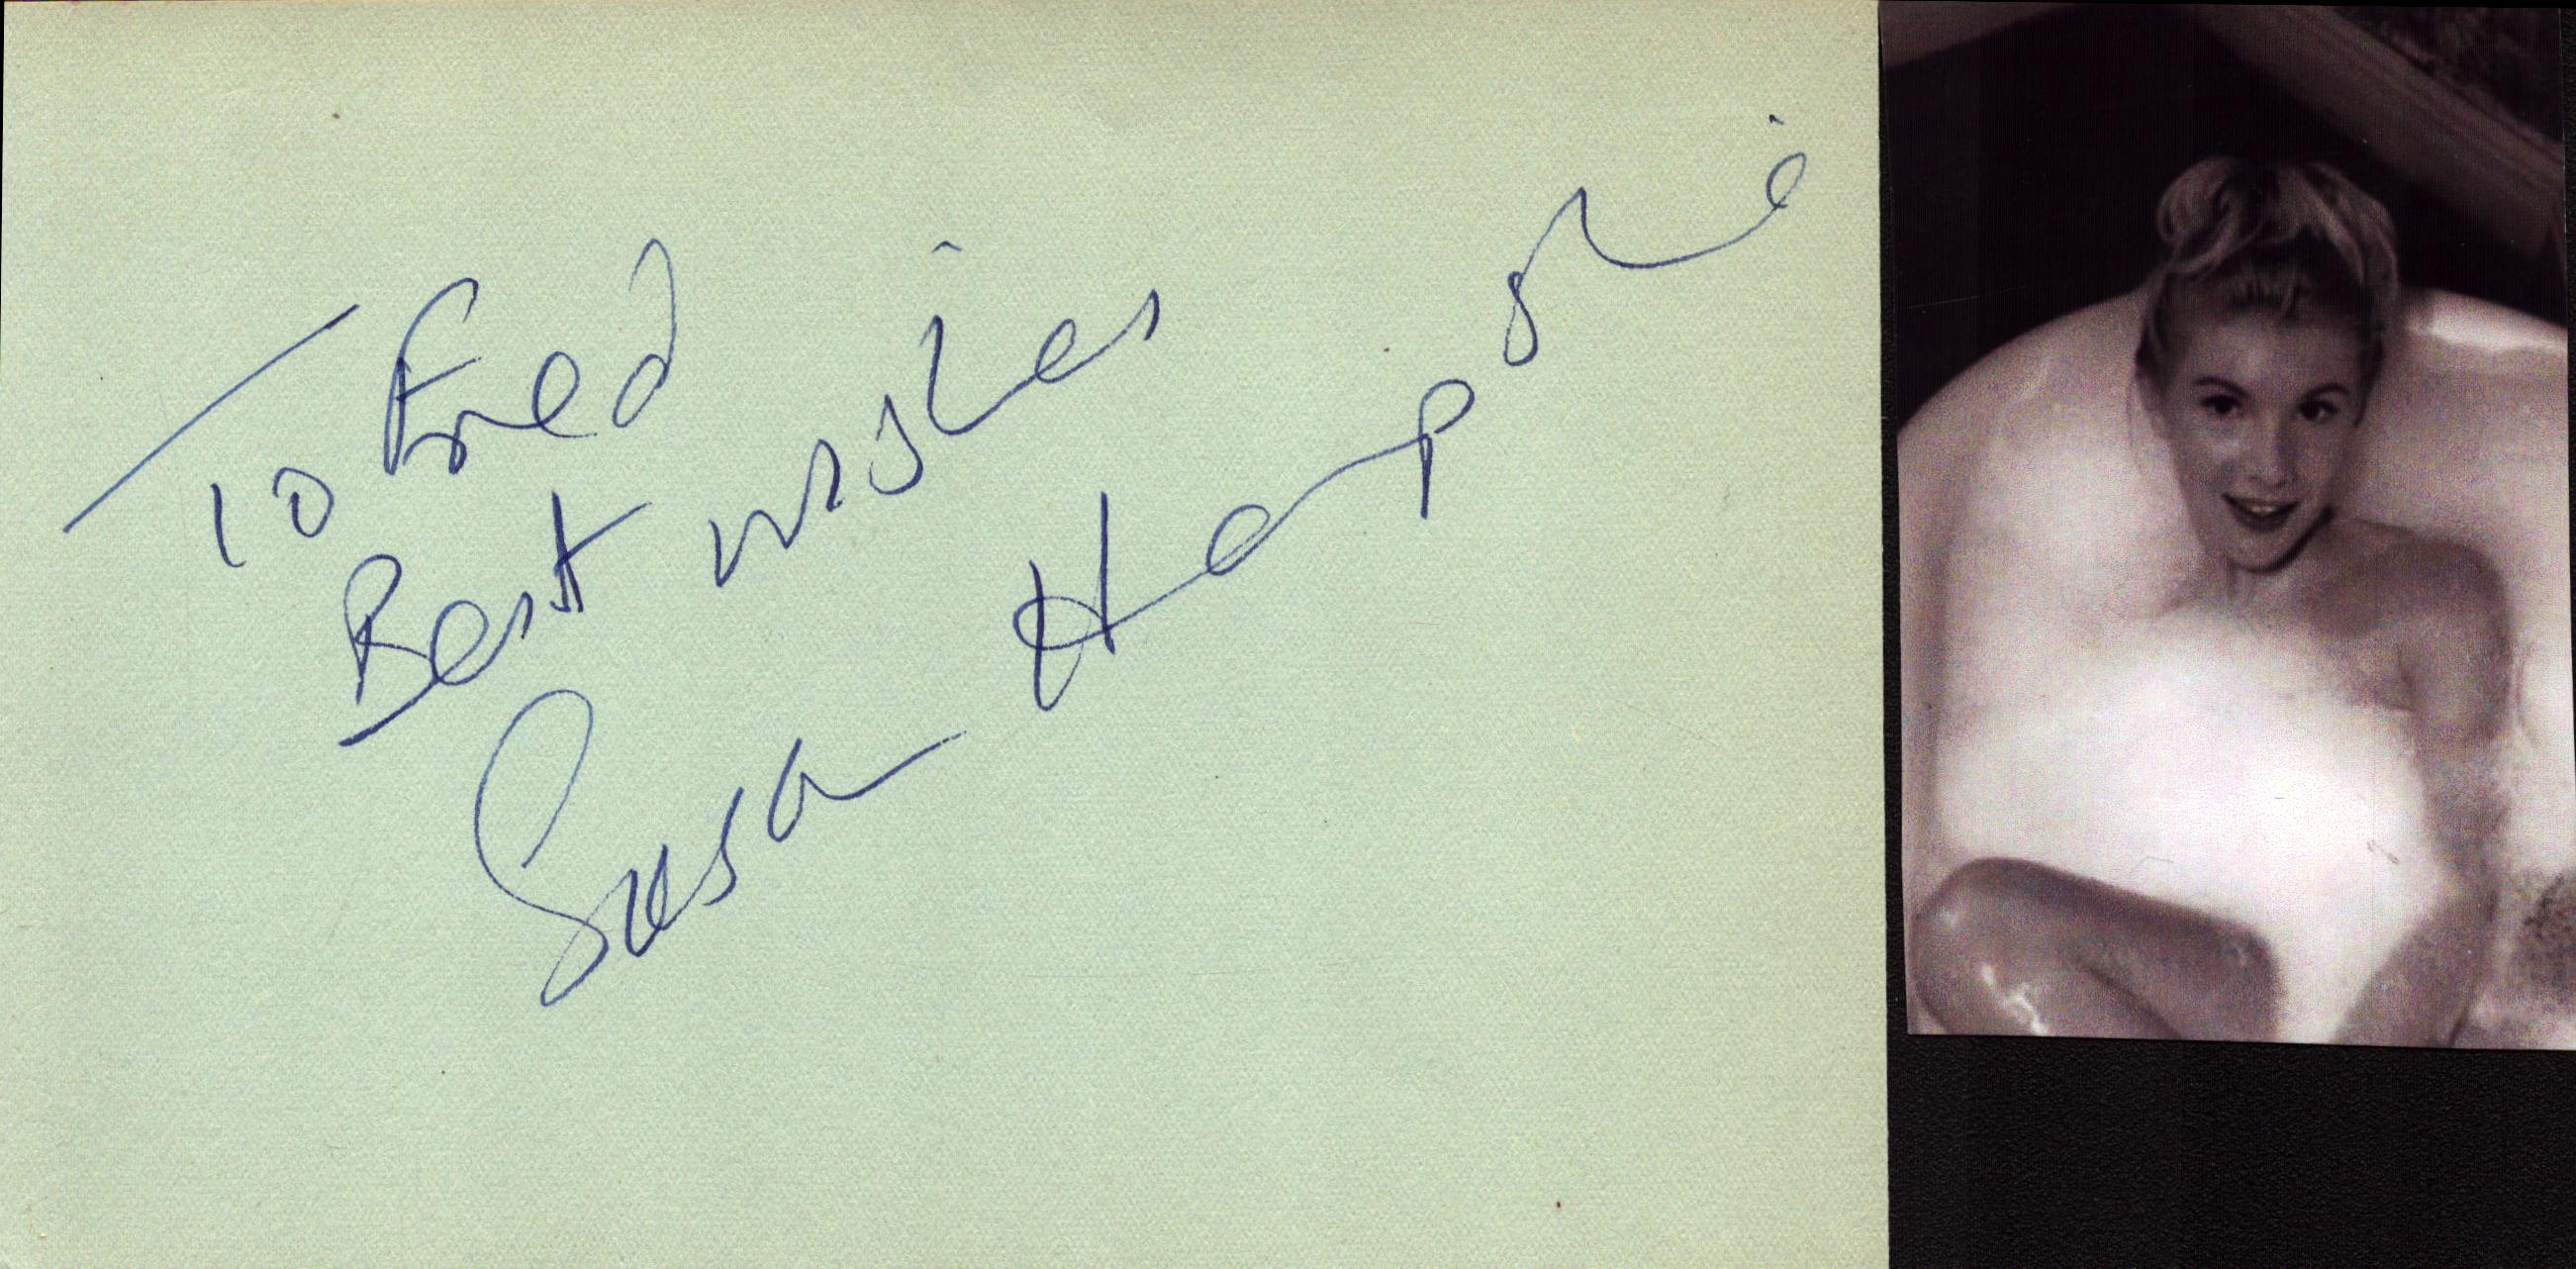 To Fred
Best wishes
Susan Hampshire